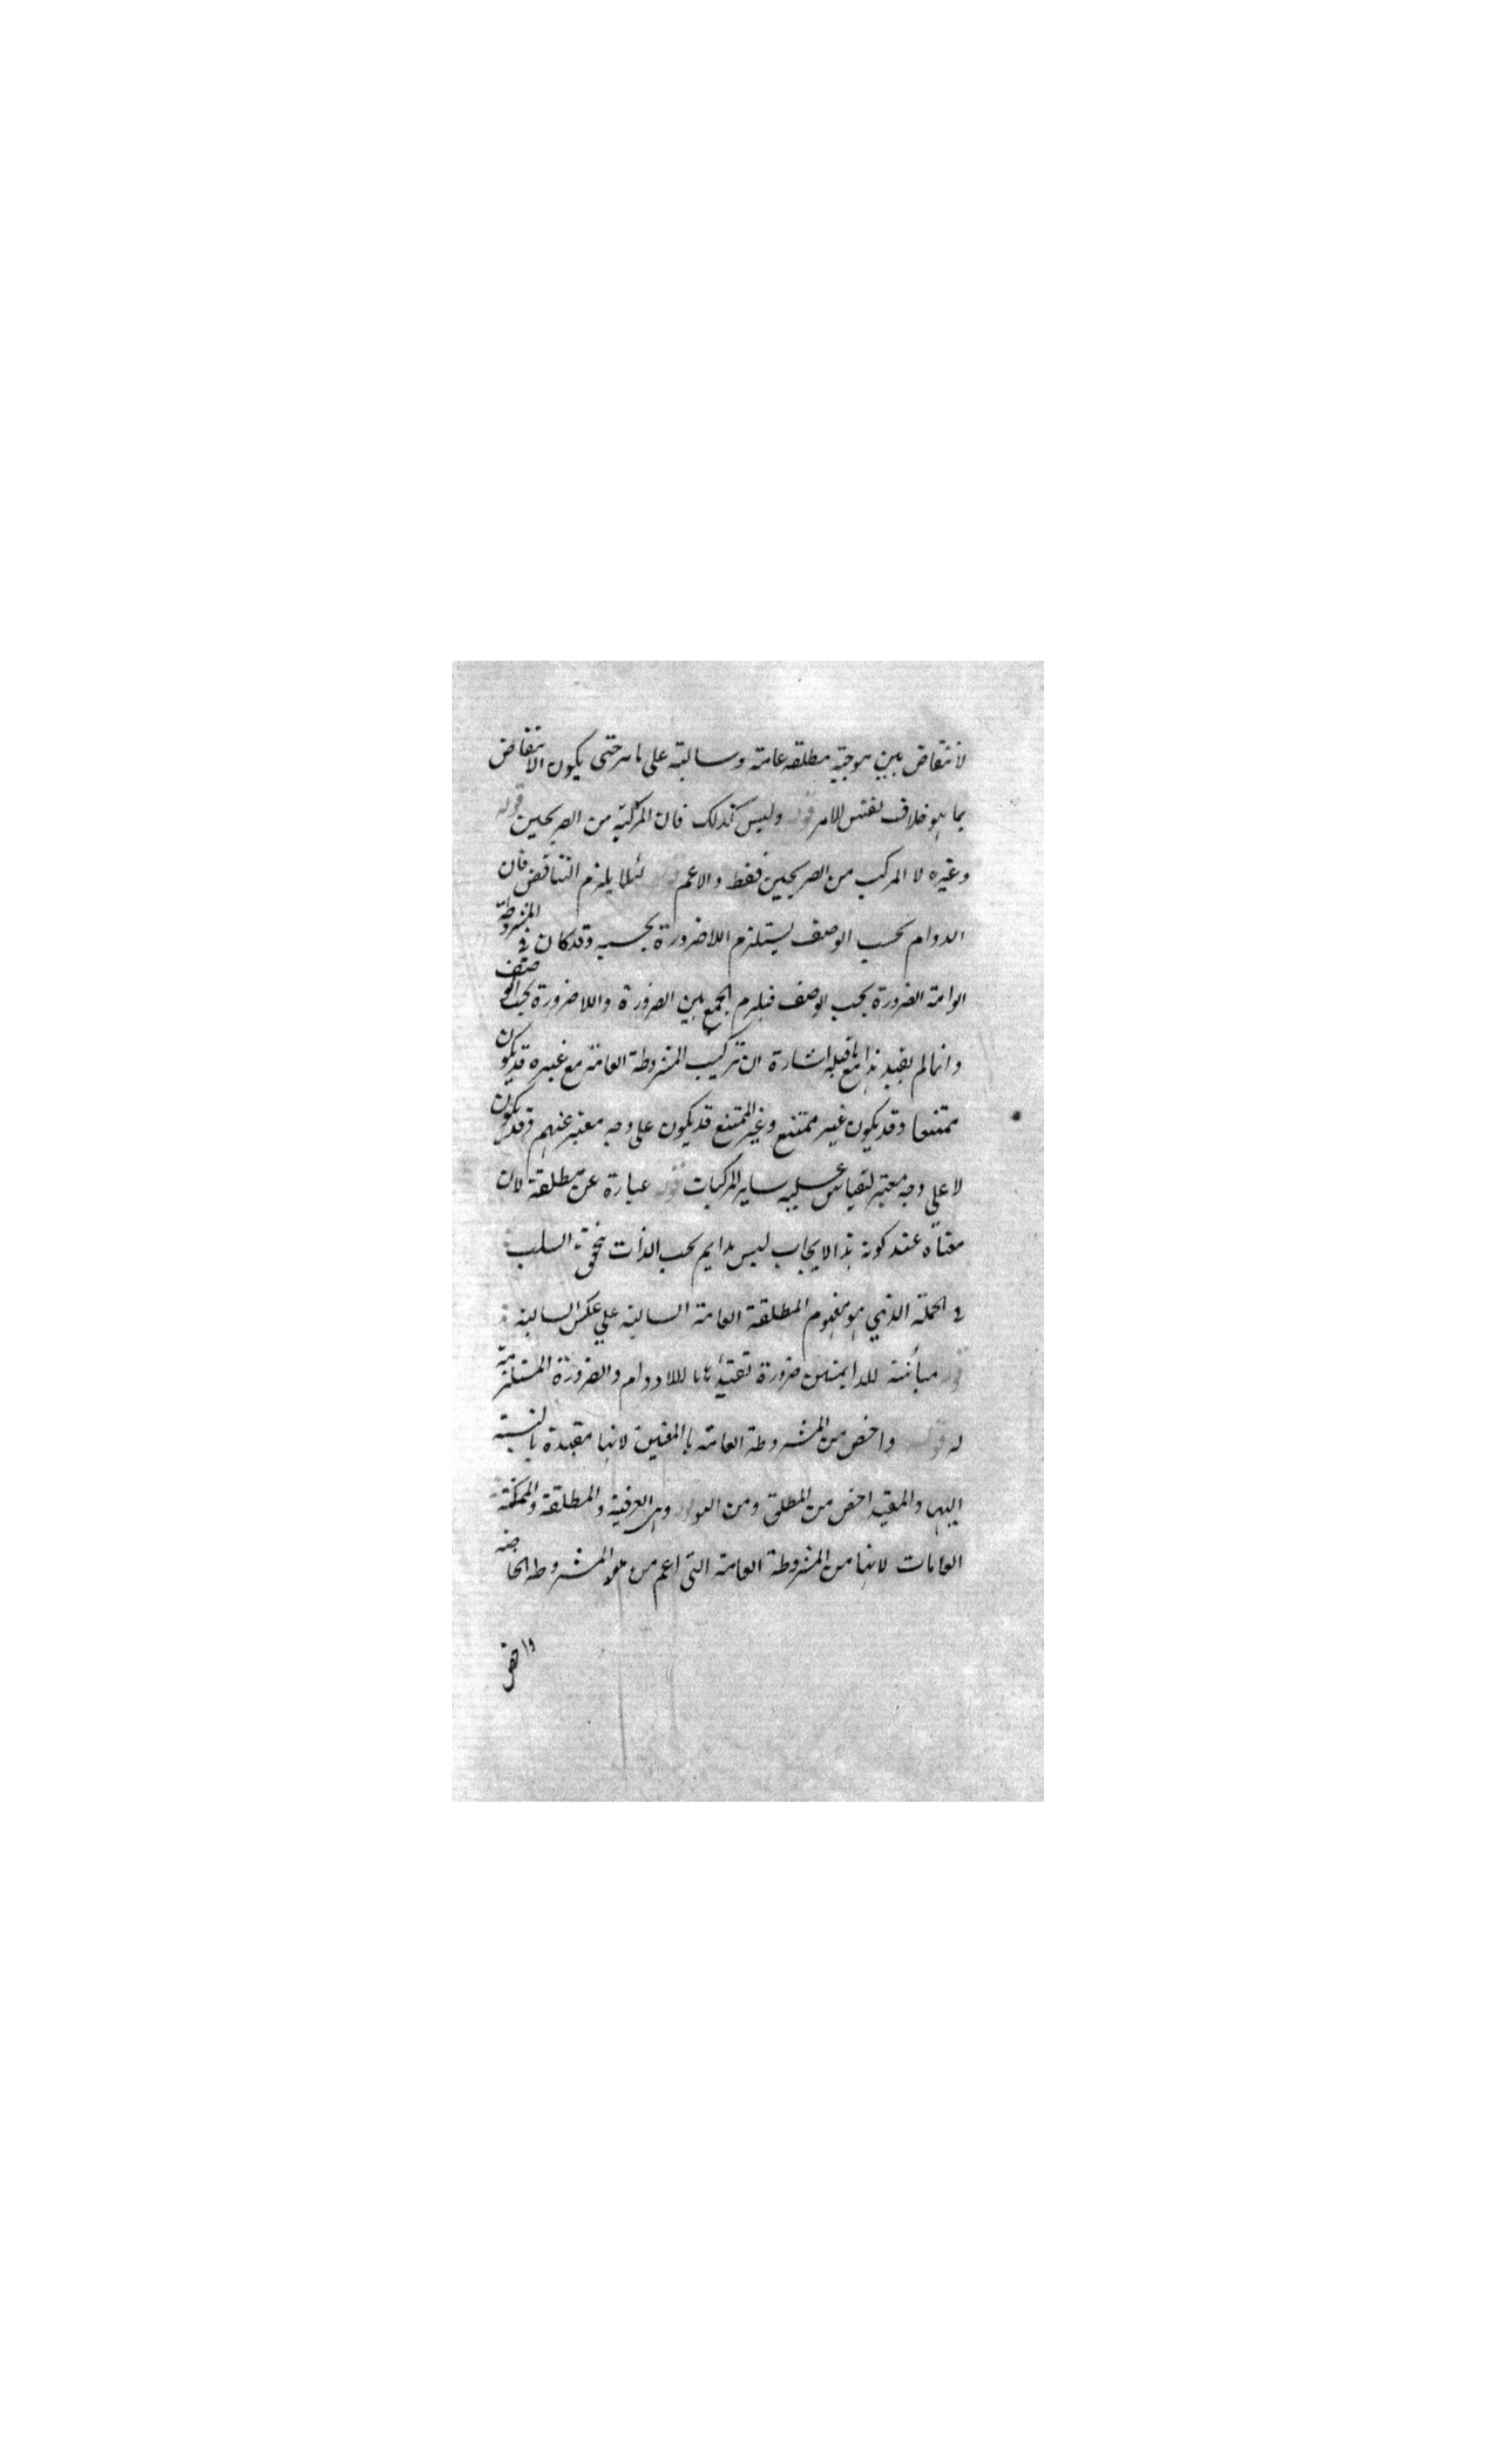 لا تناقض بين موجبة مطلقه عامة وسالبة على ما مر حتى يكون الانتقاض
بما هو خلاف نفس الامر قوله وليس كذلك فان المركبة من الصريحين قوله
وغيره لا المركب من الصريحين فقط والاعم قوله لئلا يلزم التناقض فان
الدوام بحسب الوصف يستلزم اللاضرورة بحسبه وقد كان في المشروطة
العامة الضرورة بحسب الوصف فيلزم الجمع بين الضرورة واللاضرورة بحسب الوصف
وانما لم يقيد هذا مع قبله اشارة ان تركيب المشروطة العامة مع غيره قد يكون
ممتنعا وقد يكون غير ممتنع وغير الممتنع قد يكون على وجه معتبر عنهم وقد يكون
لا على وجه معتبر ليقاس عليه ساير المركبات قوله عبارة عن مطلقة لان
معناه عند كونه هذا الايجاب ليس بدايم بحسب الذات فيتحقق السلب
في الجملة الذي هو مفهوم المطلقة العامة السالبة على عكس السالبة
قوله مبائنة للدايمتين ضرورة تقييدها باللادوام والضرورة المستلزمة
له قوله واخص من المشروطة العامة بالمعنيين لانها مقيدة بالنسبة
اليها والمقيد اخص من المطلق ومن البواقي وهي العرفية والمطلقة والممكنة
العامات لانها من المشروطة العامة التي اعم من المشروطه الخاصة
واخص